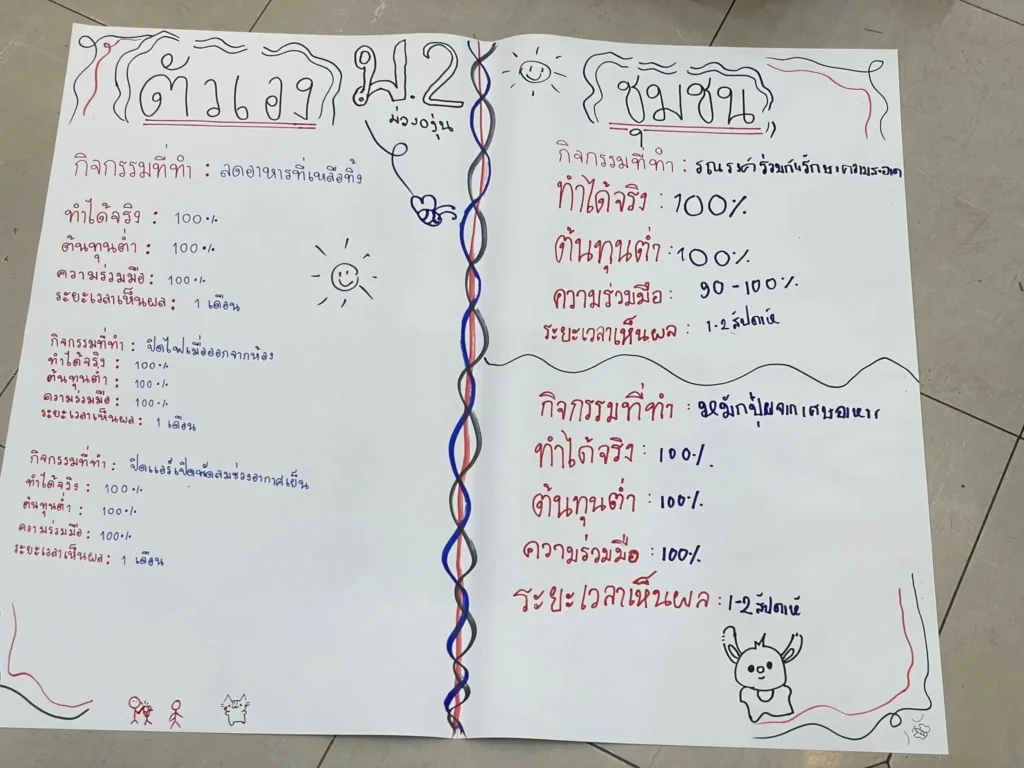 ตัวเอง
ม.2
ม่วงองุ่น
กิจกรรมที่ทำ : ลดอาหารที่เหลือทิ้ง
ทำได้จริง : 100%
ต้นทุนต่ำ : 100%
ความร่วมมือ : 100%
ระยะเวลาเห็นผล : 1 เดือน
กิจกรรมที่ทำ : ปิดไฟเมื่อออกจากห้อง
ทำได้จริง : 100%
ต้นทุนต่ำ : 100%
ความร่วมมือ : 100%
ระยะเวลาเห็นผล : 1 เดือน
กิจกรรมที่ทำ : ปิดแอร์เปิดพัดลมช่วงอากาศเย็น
ทำได้จริง : 100%
ต้นทุนต่ำ : 100%
ความร่วมมือ : 100%
ระยะเวลาเห็นผล : 1 เดือน
ชุมชน
กิจกรรมที่ทำ : รณรงค์ร่วมกันรักษาความสะอาด
ทำได้จริง : 100%
ต้นทุนต่ำ : 100%
ความร่วมมือ : 90-100%
ระยะเวลาเห็นผล : 1-2 สัปดาห์
กิจกรรมที่ทำ : หมักปุ๋ยจากเศษอาหาร
ทำได้จริง : 100%
ต้นทุนต่ำ : 100%
ความร่วมมือ : 100%
ระยะเวลาเห็นผล : 1-2 สัปดาห์